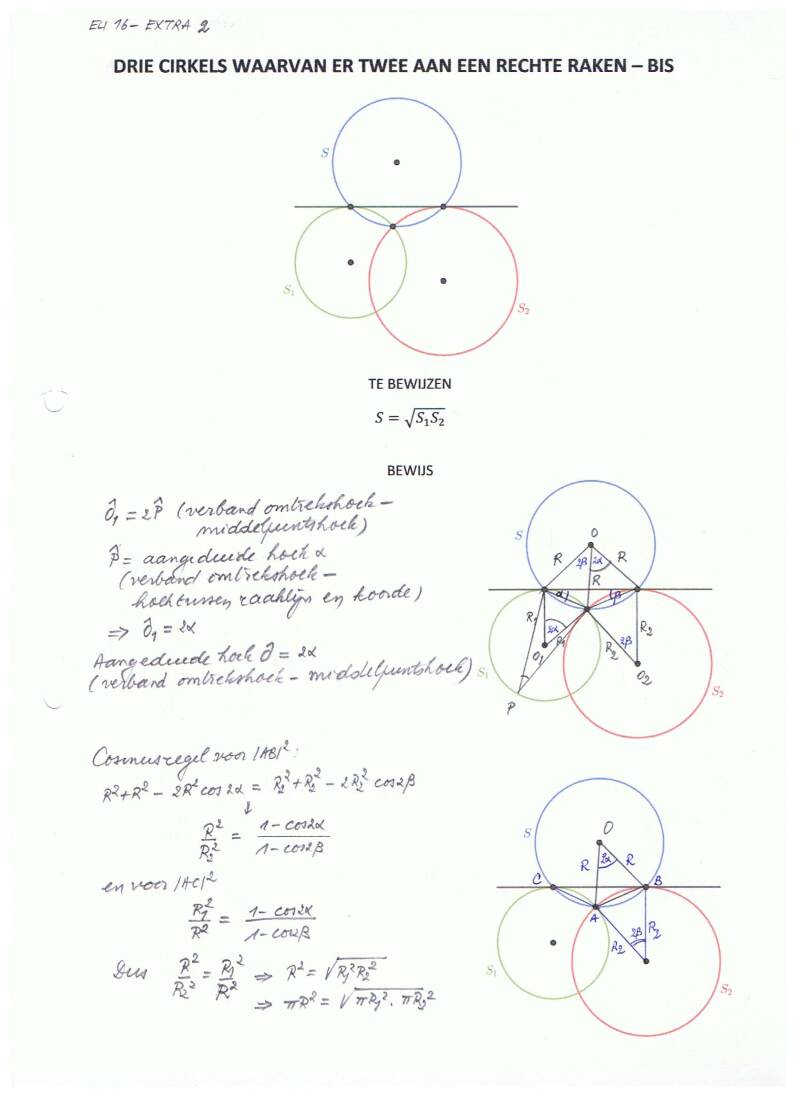 ELI 16 - EXTRA 2
DRIE CIRKELS WAARVAN ER TWEE AAN EEN RECHTE RAKEN – BIS
S
S₁
S₂
TE BEWIJZEN
S = √S₁S₂
BEWIJS
Ô₁ = 2P̂ (verband omtrekshoek –
middelpuntshoek)
P̂ = aangeduide hoek α
(verband omtrekshoek –
hoek tussen raaklijn en koorde)
⇒ Ô₁ = 2α
Aangeduide hoek Ô = 2α
(verband omtrekshoek – middelpuntshoek)
S
O
R
2β
2α
R
R
α
β
R₁
2α
R₁
O₁
R₂
2β
R₂
O₂
S₁
P
S₂
Cosinusregel voor |AB|²:
R² + R² – 2R² cos 2α = R₂² + R₂² – 2R₂² cos 2β
↓
R²/R₂² = (1 – cos 2α)/(1 – cos 2β)
en voor |AC|²
R₁²/R² = (1 – cos 2α)/(1 – cos 2β)
Dus R²/R₂² = R₁²/R² ⇒ R² = √R₁²R₂²
⇒ πR² = √πR₁² . πR₂²
S
O
R
2α
R
C
B
A
R₂
2β
R₂
S₁
S₂